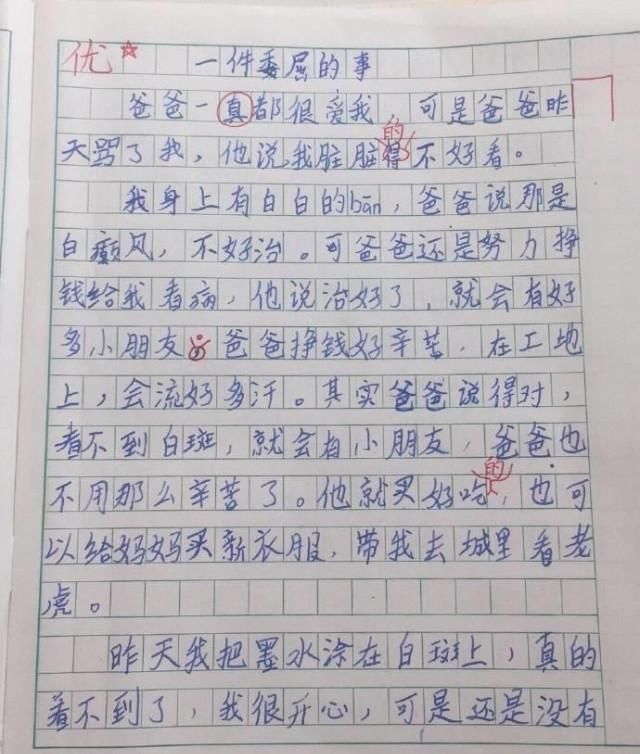 优
一件委屈的事
爸爸一真都很爱我，可是爸爸昨
的
天骂了我，他说，我脏脏得不好看。
我身上有白白的bān，爸爸说那是
白癜风，不好治。可爸爸还是努力挣
钱给我看病，他说治好了，就会有好
多小朋友。爸爸挣钱好辛苦，在工地
上，会流好多汗。其实爸爸说得对，
看不到白斑，就会有小朋友，爸爸也
的
不用那么辛苦了。他就买好吃，也可
以给妈妈买新衣服，带我去城里看老
虎。
昨天我把墨水涂在白斑上，真的
看不到了，我很开心，可是还是没有